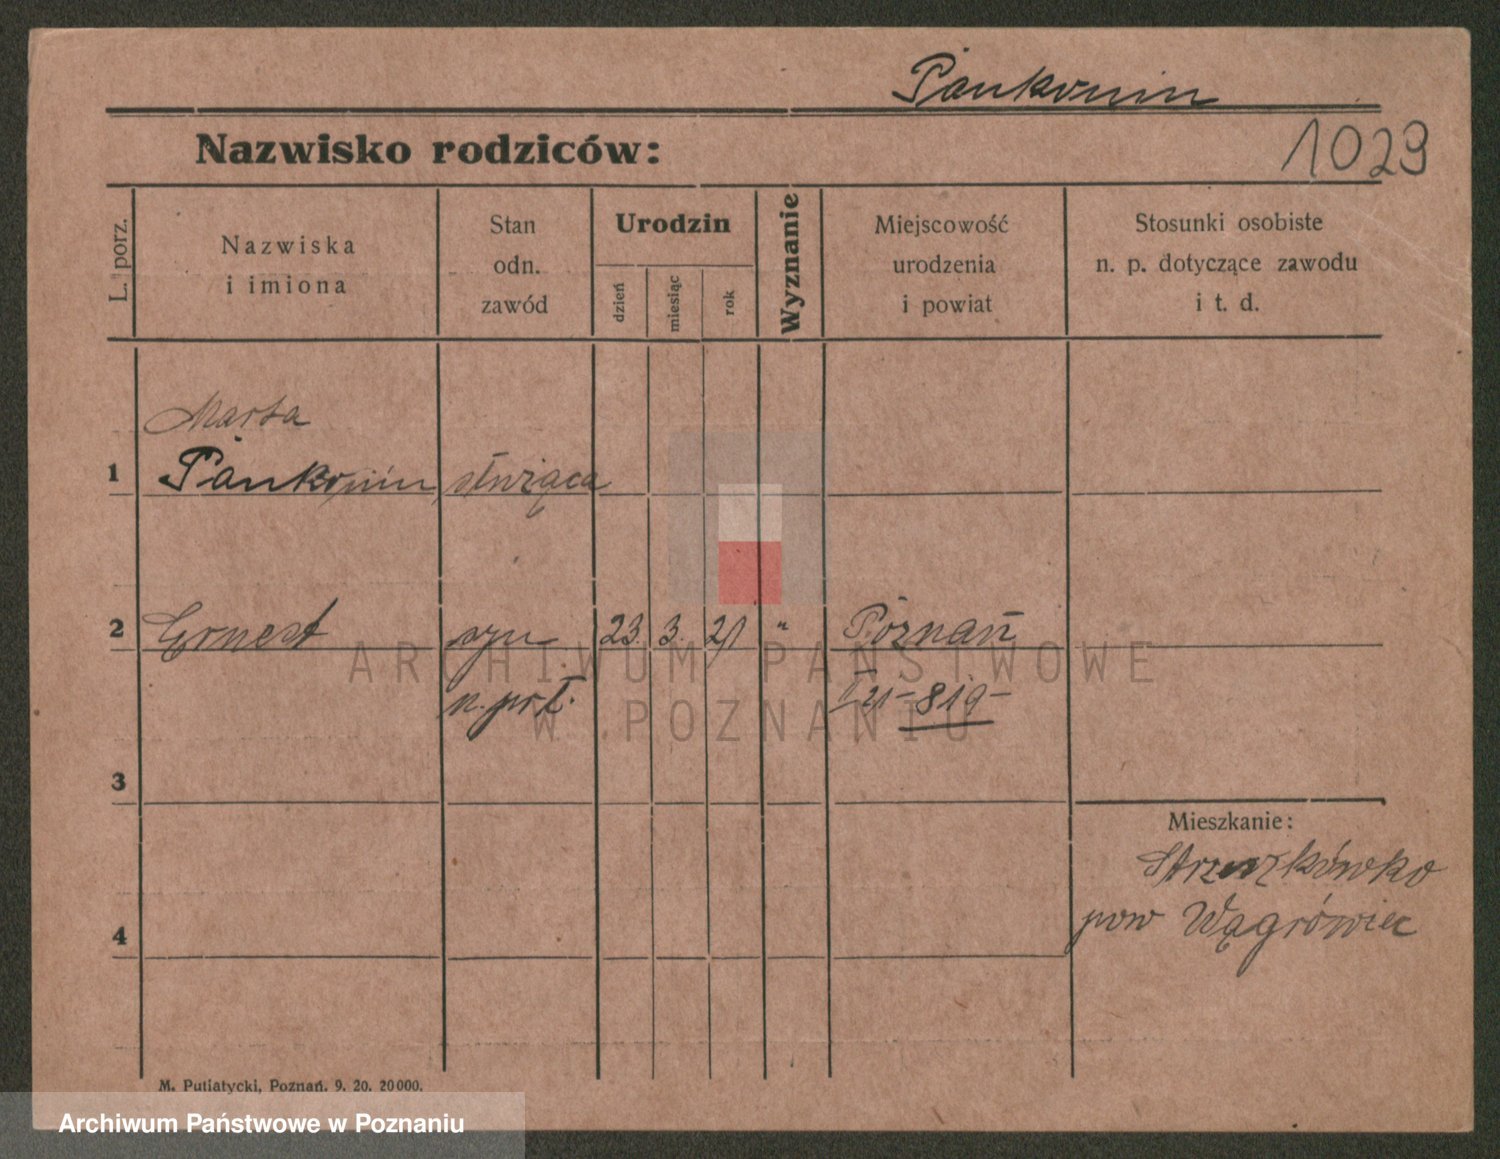 Pankonin
Nazwisko rodziców:
1029
L. porz.
Nazwiska
i imiona
Stan
odn.
zawód
Urodzin
dzień
miesiąc
rok
Wyznanie
Miejscowość
urodzenia
i powiat
Stosunki osobiste
n. p. dotyczące zawodu
i t. d.
Marta
1 Pankonin służąca
2 Ernest syn 23. 3. 21 " Poznań
-819-
3
Mieszkanie:
pow Wągrówiec
4
M. Putiatycki, Poznań. 9. 20. 20000.
ARCHIWUM PAŃSTWOWE
W POZNANIU
Archiwum Państwowe w Poznaniu